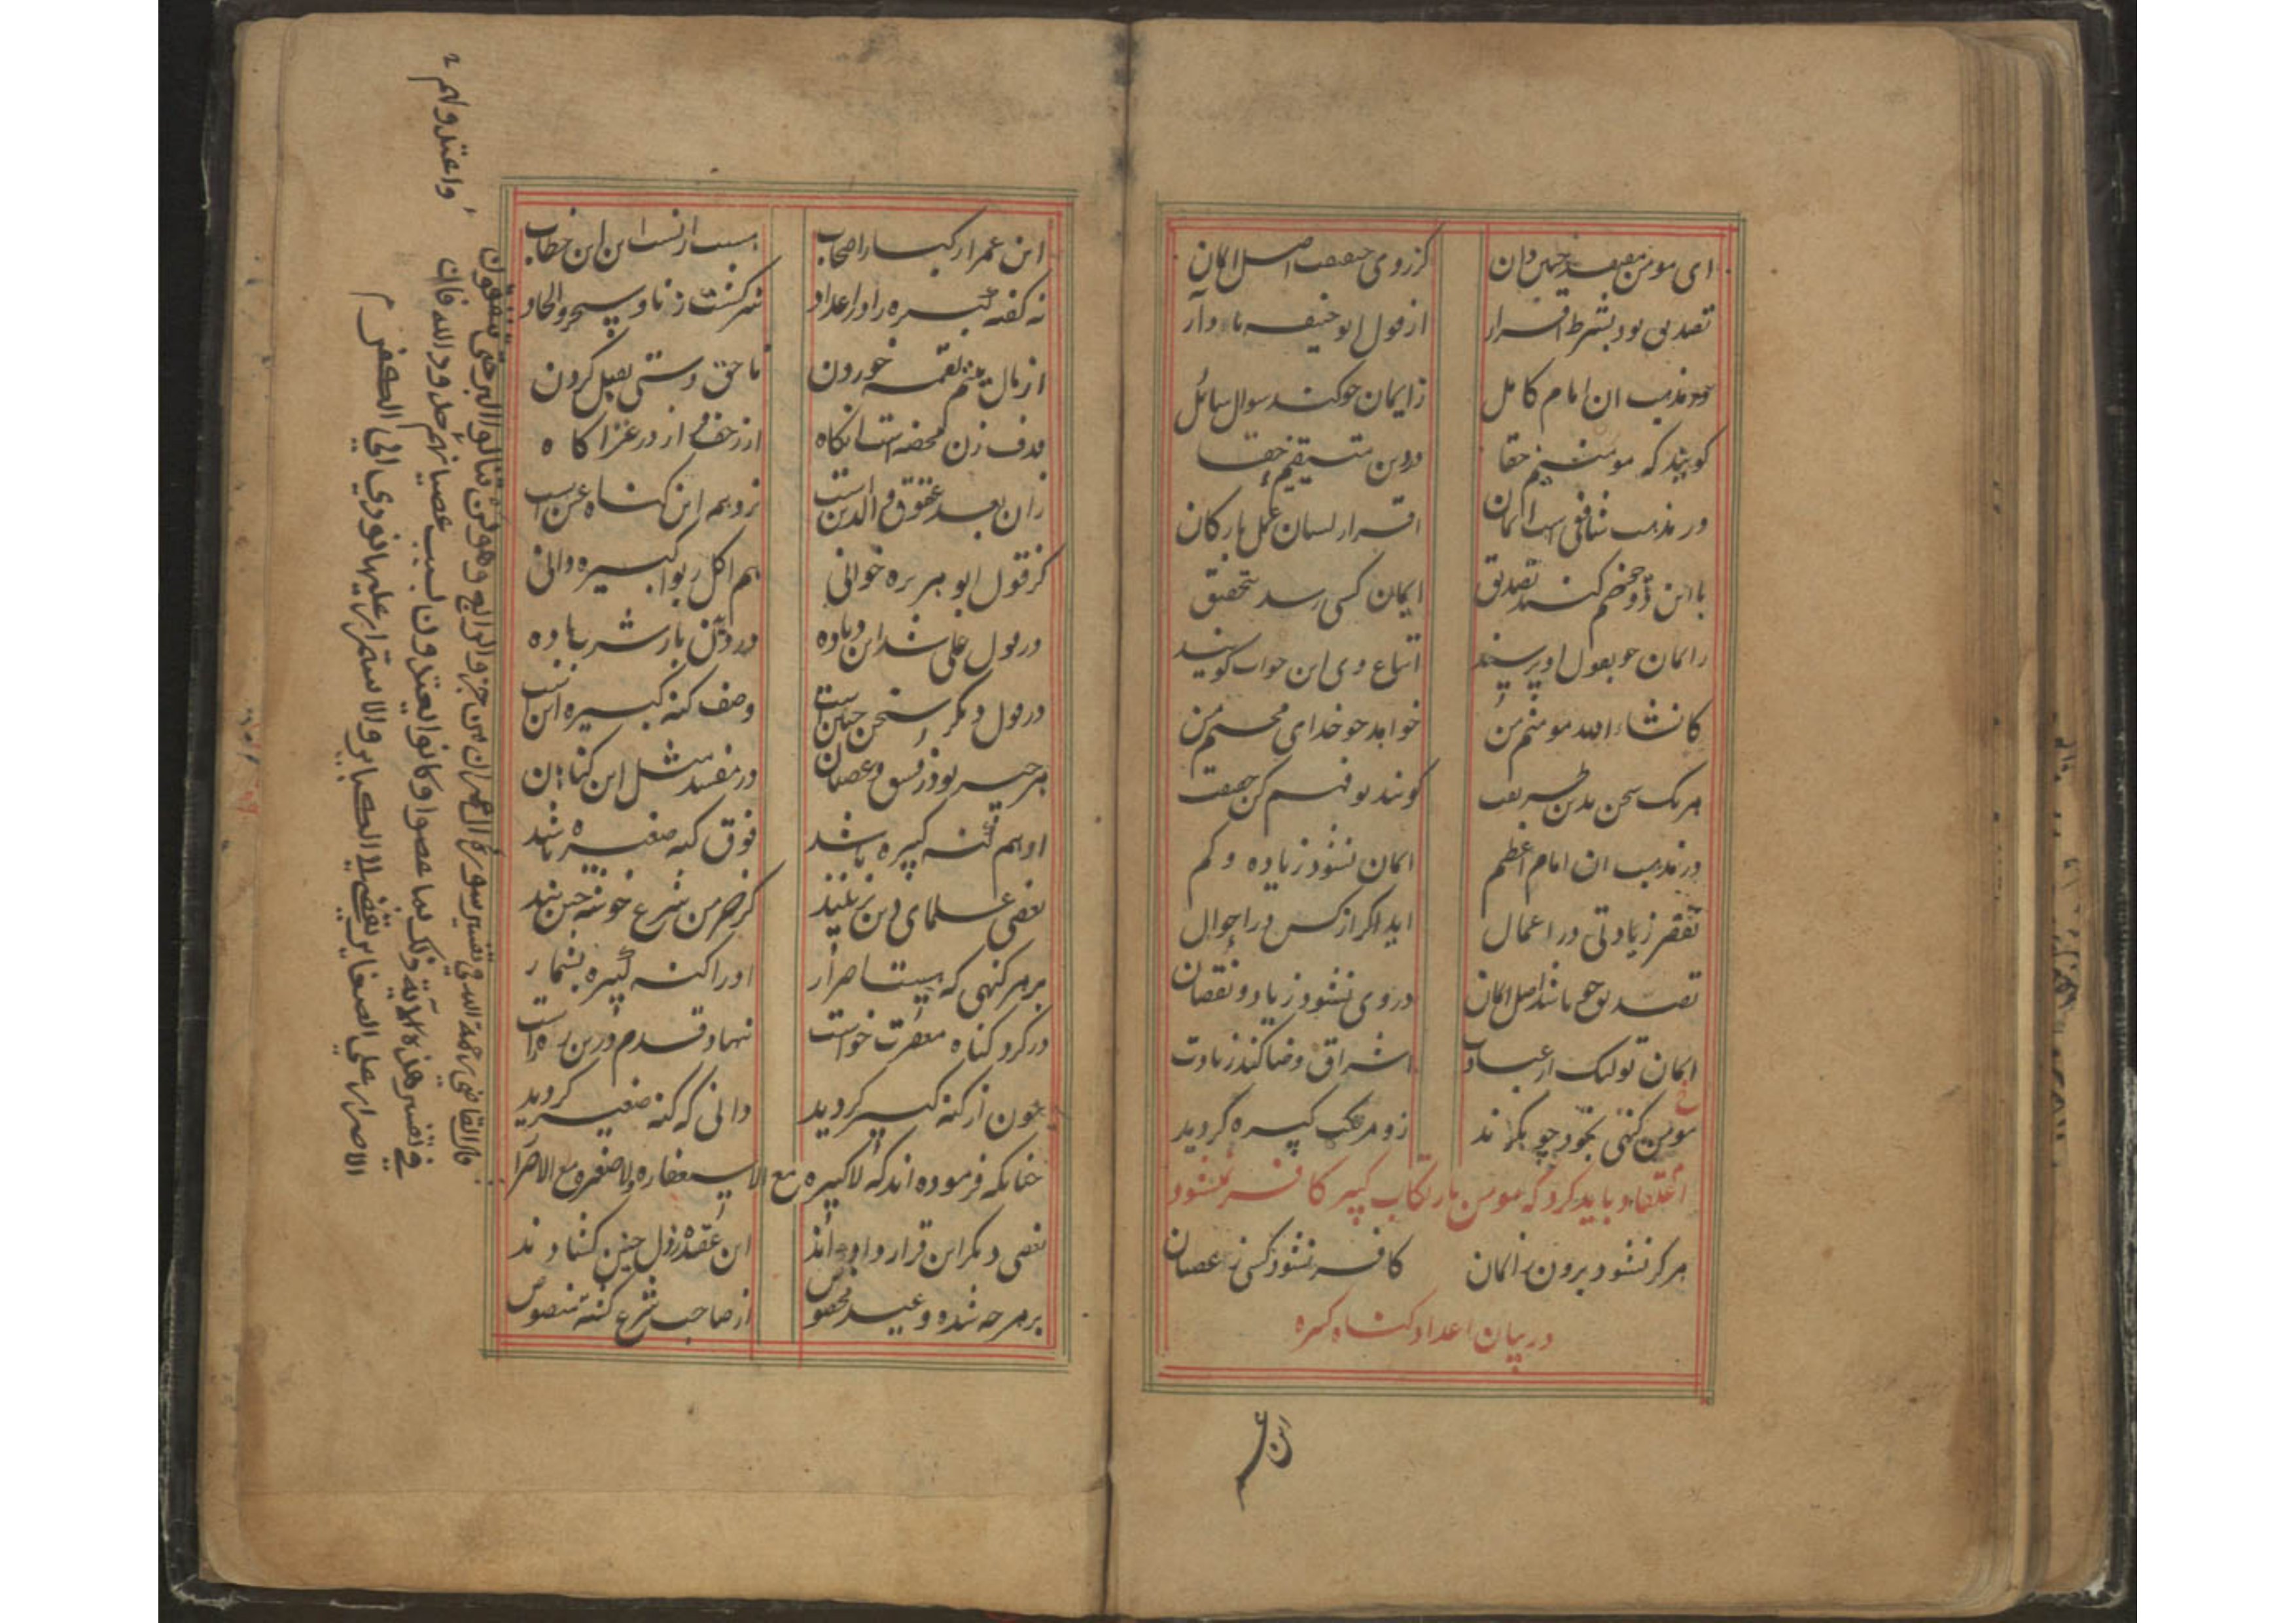 ای مومن معتقد چنین دان کز روی حقیقت اصل ایمان
تصدیق بود بشرط اقرار از قول ابو حنیفه یاد آر
در مذهب ان امام کامل ز ایمان چو کند سوال سائل
کویند که مومنیم حقا در دین متیقیم حقا
در مذهب شافعی است ایمان اقرار لسان عمل بارکان
با این دو چو ضم کند تصدیق ایمان کسی رسد بتحقیق
ز ایمان چو بقول او پرسند اتباع وی این جواب کویند
کانشاء الله مومنم من خواهد چو خدای محسنم من
هر یک سخن بدین طریقت کویند تو فهم کن حقیقت
در مذهب ان امام اعظم ایمان نشود زیاده و کم
زیادتی در اعمال اید اکر از کسی در احوال
تصدیق چو باشد اصل ایمان در وی نشود زیاد و نقصان
ایمان تو لیک از عبادت اشراق و ضیا کند زیادت
مومن کنهی بخود چو زو مرتکب کبیره کردید
اعتقاد باید کرد که مومن بارتکاب کبیره کافر نمیشود
هرکز نشود برون ز ایمان کافر نشود کسی ز عصیان
در بیان اعداد کناه کبیره
ابن عمر
ابن عمر از کبار اصحاب هست از نسب این ابن خطاب
نه کفته کبیره را در اعداد شرکست و زنا و سحر و الحاد
از مال یتیم لقمه خوردن ناحق دستی بقتل کردن
قذف زن محصنه است انکاه از زحف فرار در غزا کاه
زان بعد عقوق والدین است نزد همه این کناه عین است
کر قول ابو هریره خوانی هم اکل ربوا کبیره دانی
در قول علی شد این زیاده دزدیدن باز شرب باده
در قول دکر سخن چنین است وصف کنه کبیره این است
هر چیز بود ز فسق و عصیان در مفسده مثل این کناهان
او هم کنه کبیره باشد فوق کنه صغیره باشد
بعضی علمای دین بر انند کز خرمن شرع خوشه چینند
بر هر کنهی که هست اصرار او را کنه کبیره بشمار
در کرد کناه مغفرت خواست نهاد قدم درین ره راست
چون از کنه کبیر کردید دانی که کنه صغیر کردید
چنانکه فرموده اند که لا کبیره مع الاستغفار و لا صغیره مع الاصرار
بعضی دکر این قرار دادند این عقده ز دل چنین کشادند
بر هر چه شده وعید مخصوص از صاحب شرع کشته منصوص
قال القاضی رحمة الله فی تفسیر سورة ال عمران من جزو الرابع وهو لن تنالوا البر حتی تنفقون
فی تفسیر هذه الآیة ذلک بما عصوا و کانوا یعتدون بسبب عصیانهم حدود الله فان
الاصرار علی الصغایر یفضی الی الکبایر والاستمرار علیها یؤدي الی الکفر
واعتدوا